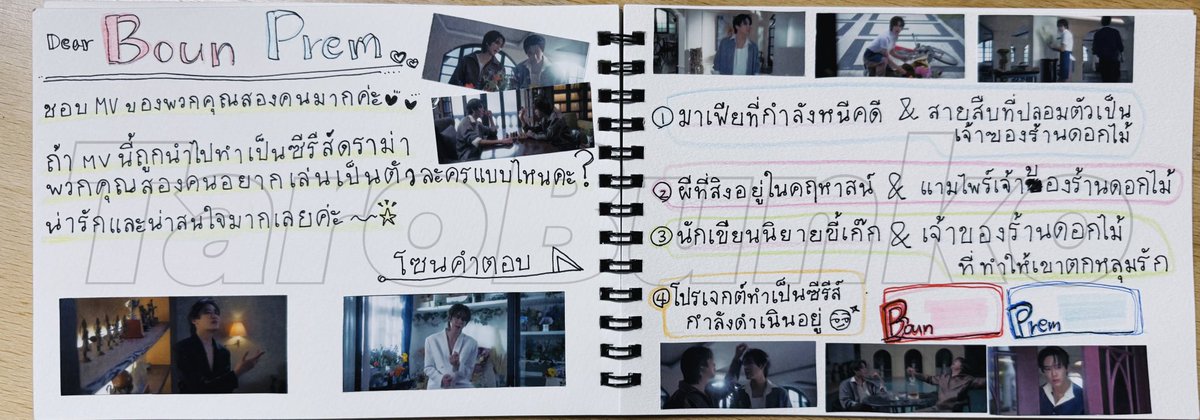 Dear Boun Prem
ชอบ MV ของพวกคุณสองคนมากค่ะ
ถ้า MV นี้ถูกนำไปทำเป็นซีรีส์ดราม่า
พวกคุณสองคนอยากเล่นเป็นตัวละครแบบไหนคะ?
น่ารักและน่าสนใจมากเลยค่ะ ~
โซนคำตอบ
① มาเฟียที่กำลังหนีคดี & สายสืบที่ปลอมตัวเป็น
เจ้าของร้านดอกไม้
② ผีที่สิงอยู่ในคฤหาสน์ & แวมไพร์เจ้าของร้านดอกไม้
③ นักเขียนนิยายขี้เก๊ก & เจ้าของร้านดอกไม้
ที่ทำให้เขาตกหลุมรัก
④ โปรเจกต์ทำเป็นซีรีส์
กำลังดำเนินอยู่
Boun
Prem
TaroBunko